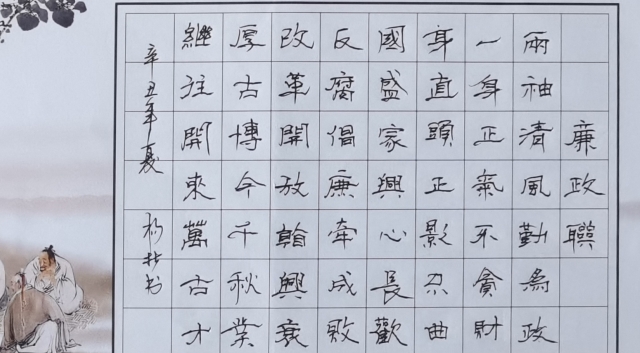 廉政聯
兩袖清風勤為政
一身正氣不貪財
身直頭正影不曲
國盛家興心長歡
反腐倡廉牽成敗
改革開放翰興衰
厚古博今千秋業
繼往開來萬古才
辛丑年夏
书